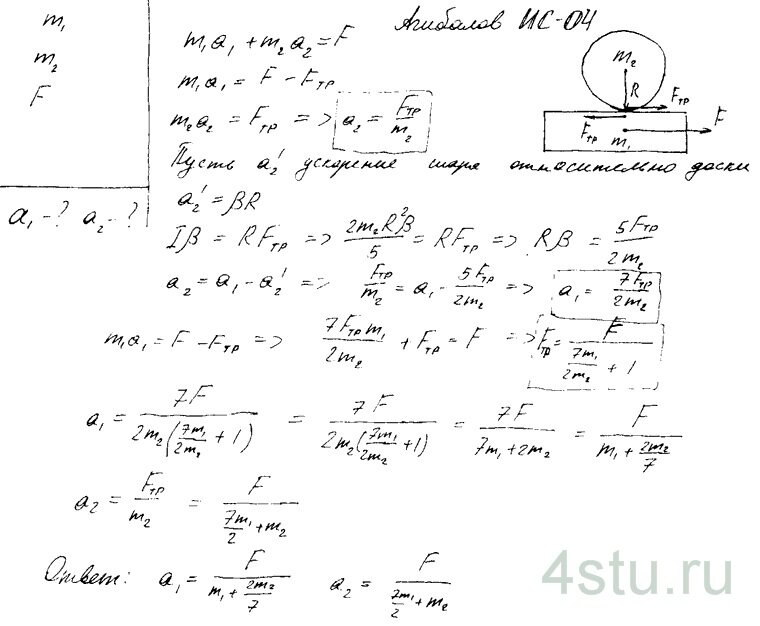 m₁
m₂
F
a₁ - ? a₂ - ?
Агибалов ИС-04
m₁a₁ + m₂a₂ = F
m₁a₁ = F - Fтр
m₂a₂ = Fтр => a₂ = Fтр/m₂
m₂
R
Fтр
Fтр
F
m₁
Пусть a₂' ускорение шара относительно доски
a₂' = βR
Iβ = RFтр => 2m₂R²β/5 = RFтр => Rβ = 5Fтр/2m₂
a₂ = a₁ - a₂' => Fтр/m₂ = a₁ - 5Fтр/2m₂ => a₁ = 7Fтр/2m₂
m₁a₁ = F - Fтр => 7Fтр m₁/2m₂ + Fтр = F => Fтр = F/(7m₁/2m₂ + 1)
a₁ = 7F/(2m₂(7m₁/2m₂ + 1)) = 7F/(2m₂(7m₁/2m₂ + 1)) = 7F/(7m₁ + 2m₂) = F/(m₁ + 2m₂/7)
a₂ = Fтр/m₂ = F/(7m₁/2 + m₂)
Ответ: a₁ = F/(m₁ + 2m₂/7) a₂ = F/(7m₁/2 + m₂)
4stu.ru